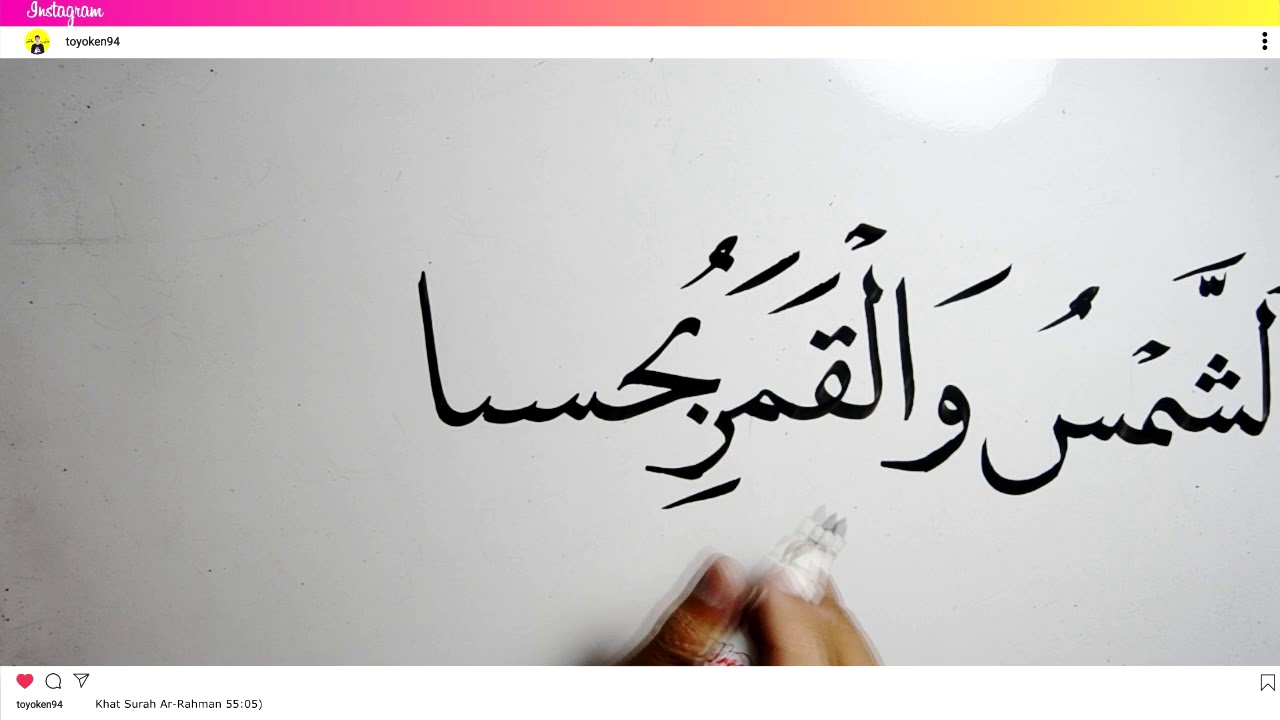 Instagram
toyoken94
لشَّمْسُ وَالْقَمَرُ بِحسبا
toyoken94 Khat Surah Ar-Rahman 55:05)